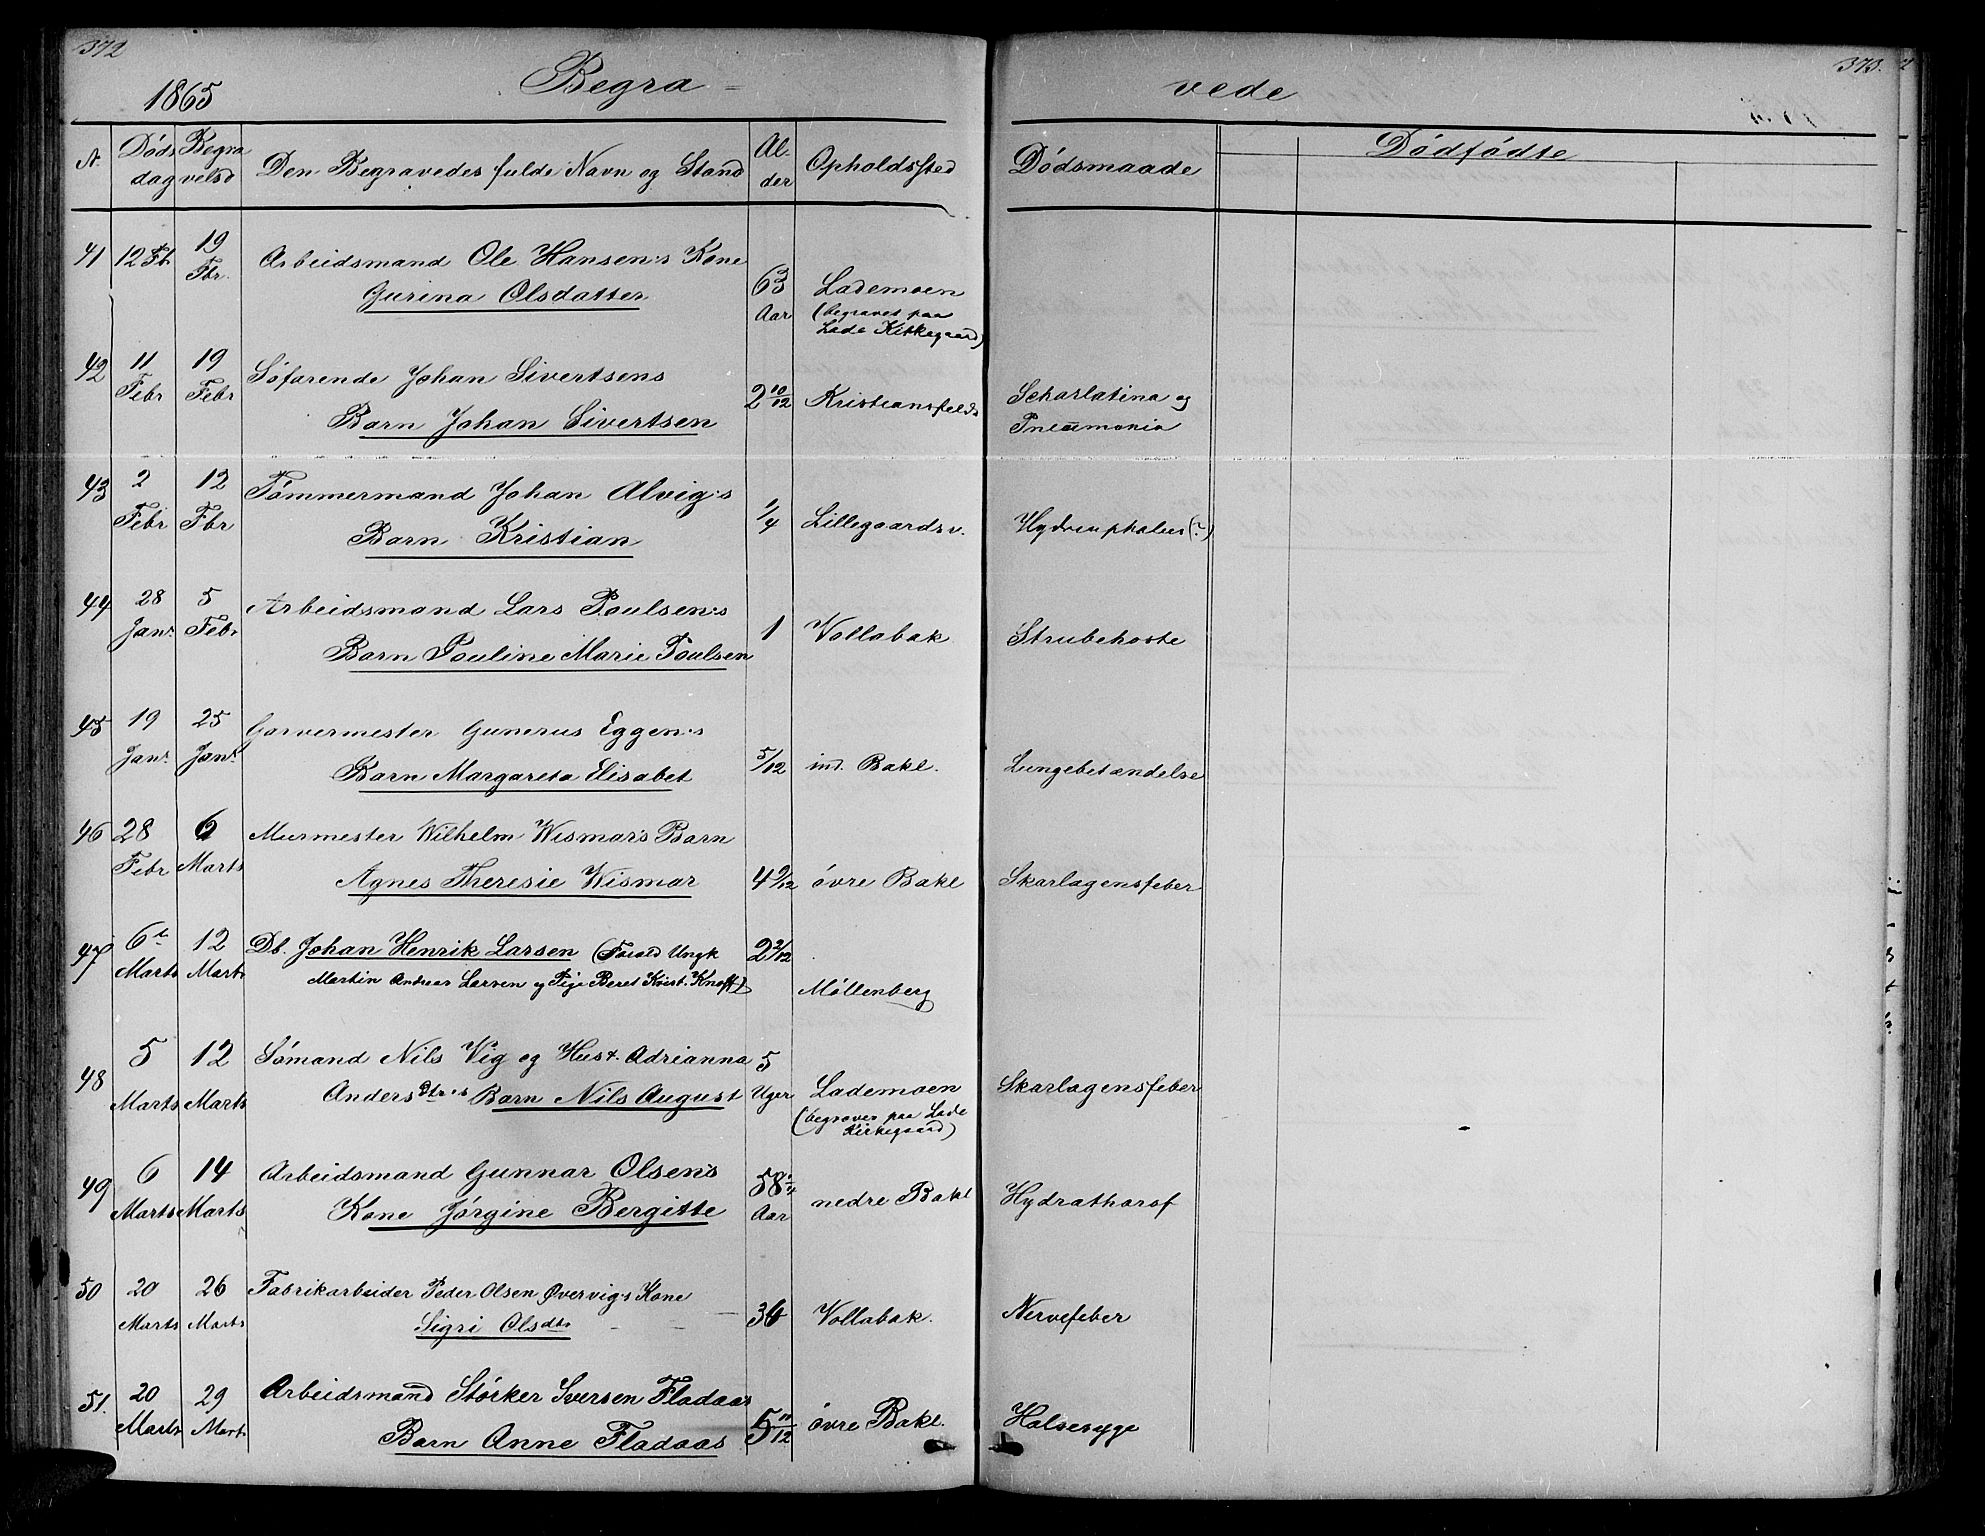 372
373.
1865
Begra=
vede
N. Døds dag Begra velsd Den Begravedes fulde Navn og Stand Al-der Opholdssted Dødsmaade Dødfødte
41 12 Fb. 19 Fbr. Arbeidsmand Ole Hansen's Kone
Gurina Olsdatter 63 Aar Lademoen
(begraves paa
Lade Kirkegaard)
42 11 Febr 19 Febr Søfarende Johan Sivertsens
Barn Johan Sivertsen 2 10/12 Kristiansfeld Scharlatina og
Pneumonia
43 2 Febr 12 Fbr Tømmermand Johan Alvig's
Barn Kristian 1/4 Lillegaardsv. (?)
44 28 Janr. 5 Febr Arbeidsmand Lars Poulsen's
Barn Pauline Marie Poulsen 1 Vollabak Strubehoste
45 19 Janr. 25 Janr. Garvermester Gunerus Eggen's
Barn Margareta Elisabet 5/12 ind. Bakl. Lungebetændelse
46 28 Febr 6 Marts Murmester Wilhelm Wismar's Barn
Agnes Theresie Wismar 4 9/12 øvre Bakl Skarlagensfeber
47 6t Marts 12 Marts Db. Johan Henrik Larsen (Forald Ungk
Martin Andreas Larsen og Pige Beret Krist. Knoff) 2 2/12 Møllenberg
48 5 Marts 12 Marts Sømand Nils Vig og Hust. Adrianna
Andersdtr's Barn Nils August 5 Uger Lademoen
(begraves paa Lade
Kirkegaard) Skarlagensfeber
49 6 Marts 14 Marts Arbeidsmand Gunnar Olsen's
Kone Jørgine Bergitte 58 1/4 Aar nedre Bakl Hydrathorsf
50 20 Marts 26 Marts Fabrikarbeider Peder Olsen Øvervig's Kone
Sigri Olsdtr 34 Vollabak. Nervefeber
51. 20 Marts 29 Mart. Arbeidsmand Størker Iversen Fladaas
Barn Anne Fladaas 5 11/12 øvre Bakl. Halsesyge